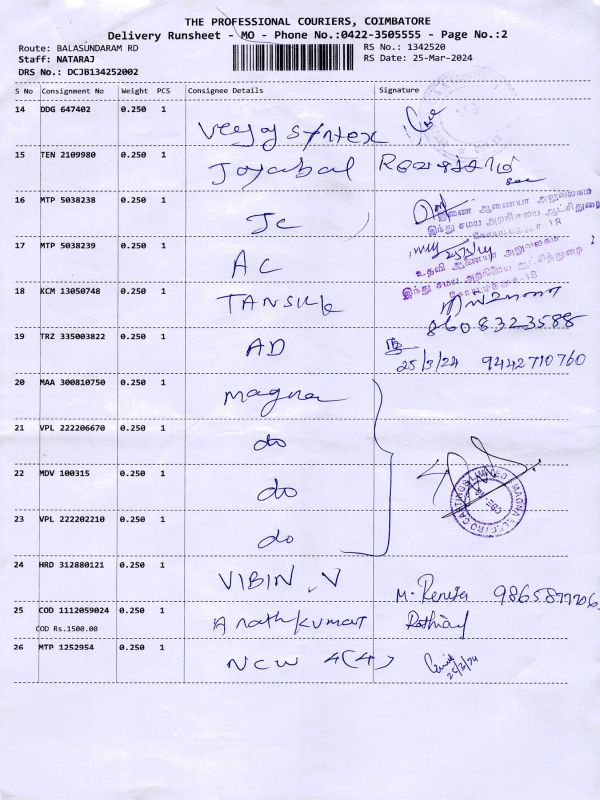 THE PROFESSIONAL COURIERS, COIMBATORE
Delivery Runsheet - MO - Phone No.:0422-3505555 - Page No.:2
Route: BALASUNDARAM RD
RS No.: 1342520
Staff: NATARAJ
RS Date: 25-Mar-2024
DRS No.: DCJB134252002
S No Consignment No Weight PCS Consignee Details Signature
14 DDG 647402 0.250 1
syntex
15 TEN 2109980 0.250 1
16 MTP 5038238 0.250 1
JC
17 MTP 5038239 0.250 1
AC
25/3/24
18 KCM 13050748 0.250 1
TANSILK
8608323588
19 TRZ 335003822 0.250 1
AD
25/3/24 9442710760
20 MAA 300810750 0.250 1
magna
21 VPL 222206670 0.250 1
do
22 MDV 100315 0.250 1
do
23 VPL 222202210 0.250 1
do
MAGNA ELECTRO CASTINGS LIMITED
CBE - 18
24 HRD 312880121 0.250 1
VIBIN.V
25 COD 1112059024 0.250 1
COD Rs.1500.00
26 MTP 1252954 0.250 1
NCW 4(4)
25/3/24